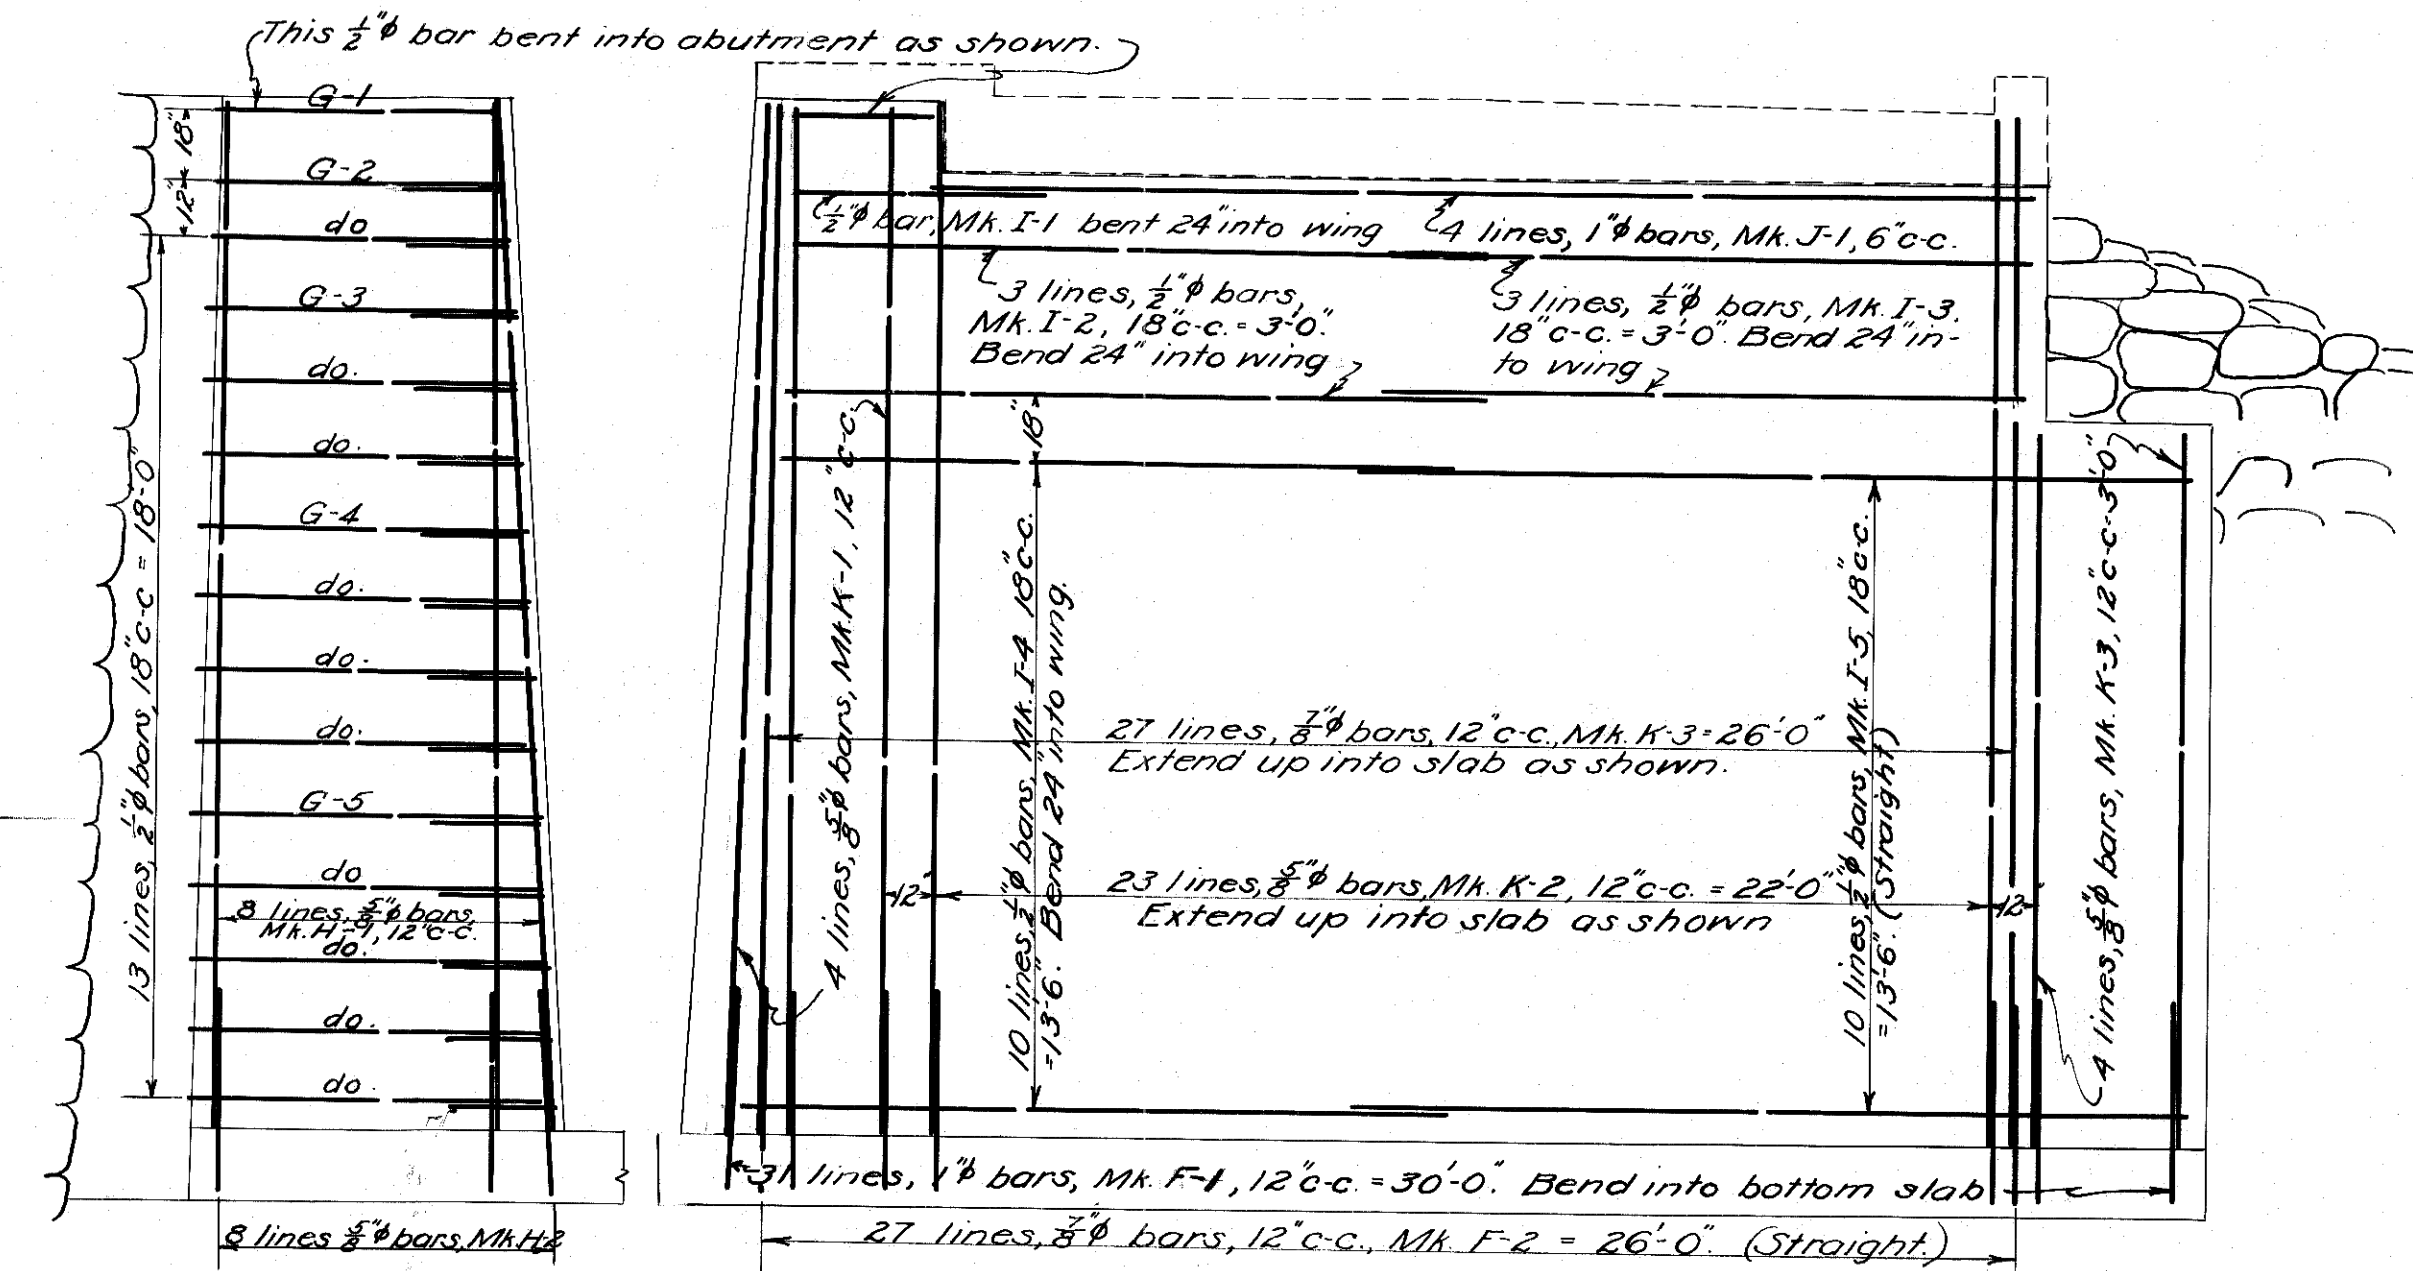 This ½"φ bar bent into abutment as shown.
G-1
18"
G-2
12"
do
G-3
do.
do.
G-4
do.
do.
do.
G-5
do
8 lines, ⅝"φ bars,
Mk. H-1, 12"c-c.
do.
do.
do.
13 lines, ½"φ bars, 18"c-c = 18'-0"
8 lines ⅝"φ bars, Mk. H-2
½"φ bar, Mk. I-1 bent 24" into wing
4 lines, 1"φ bars, Mk. J-1, 6"c-c.
3 lines, ½"φ bars,
Mk. I-2, 18"c-c. = 3'-0".
Bend 24" into wing
3 lines, ½"φ bars, Mk. I-3,
18"c-c. = 3'-0". Bend 24" in-
to wing
18"
4 lines, ⅝"φ bars, Mk. K-1, 12"c-c.
10 lines, ½"φ bars, Mk. I-4 18"c-c.
=13'-6". Bend 24" into wing.
27 lines, ⅞"φ bars, 12"c-c., Mk. K-3 = 26'-0"
Extend up into slab as shown.
12"
23 lines, ⅝"φ bars, Mk. K-2, 12"c-c. = 22'-0"
Extend up into slab as shown
10 lines, ½"φ bars, Mk. I-5, 18"c-c.
=13'-6". (Straight)
12"
4 lines, ⅝"φ bars, Mk. K-3, 12"c-c=3'-0"
31 lines, 1"φ bars, Mk. F-1, 12"c-c. = 30'-0". Bend into bottom slab
27 lines, ⅞"φ bars, 12"c-c., Mk. F-2 = 26'-0". (Straight.)